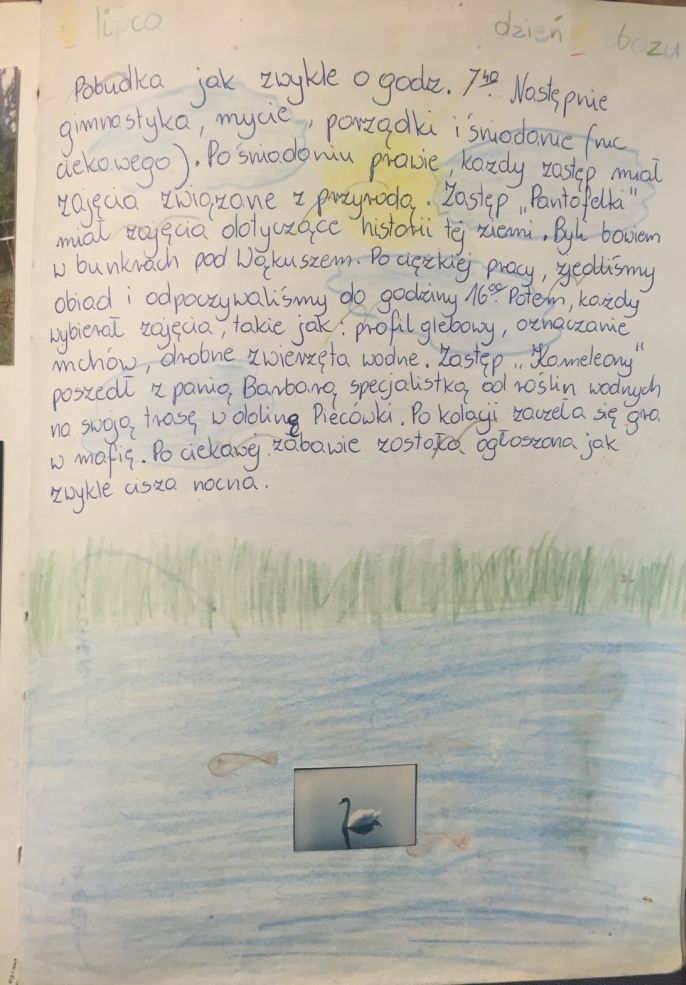 lipca dzień obozu
Pobudka jak zwykle o godz. 7⁴⁰. Następnie
gimnastyka, mycie, porządki i śniadanie (nic
ciekawego). Po śniadaniu prawie, każdy zastęp miał
zajęcia związane z przyrodą. Zastęp „Pantofelki"
miał zajęcia dotyczące historii tej ziemi. Byli bowiem
w bunkrach pod Wąkuszem. Po ciężkiej pracy, zjedliśmy
obiad i odpoczywaliśmy do godziny 16⁰⁰. Potem, każdy
wybierał zajęcia, takie jak: profil glebowy, oznaczanie
mchów, drobne zwierzęta wodne. Zastęp „Kameleony"
poszedł z panią Barbarą specjalistką od roślin wodnych
na swoją trasę w dolinę Piecówki. Po kolacji zaczęła się gra
w mafię. Po ciekawej zabawie została ogłoszona jak
zwykle cisza nocna.